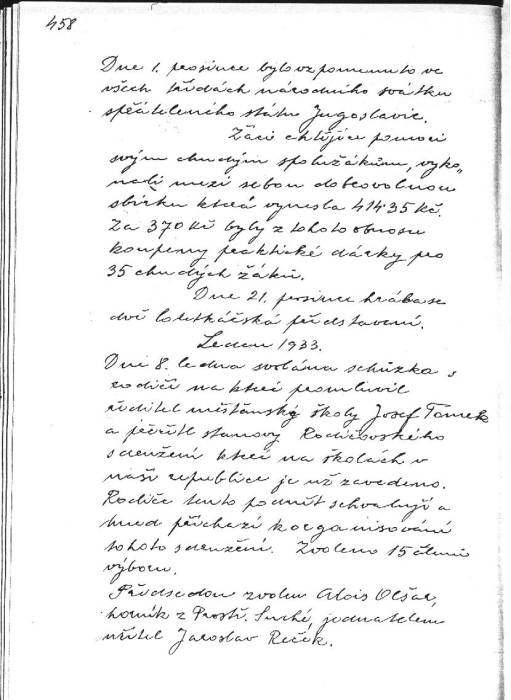 458
Dne 1. prosince bylo vzpomenuto ve
všech třídách národního svátku
spřáteleného státu Jugoslavie.
Žáci chtějíce pomoci
svým chudým spolužákům, vyko„
nali mezi sebou dobrovolnou
sbírku která vynesla 414·35 Kč.
Za 370 Kč byly z tohoto obnosu
koupeny praktické dárky pro
35 chudých žáků.
Dne 21. prosince hrála se
dvě loutkářská představení.
Leden 1933.
Dne 8. ledna svolána schůzka s
rodiči na které promluvil
ředitel měšťanské školy Josef Tomek
a přečetl stanovy Rodičovského
sdružení které na školách v
naší republice je už zavedeno.
Rodiče tento podnět schvalují a
hned přichází k organisování
tohoto sdružení. Zvoleno 15 členů
výboru.
Předsedou zvolen Alois Olšar,
horník z Prostř. Suché, jednatelem
učitel Jaroslav Reček.